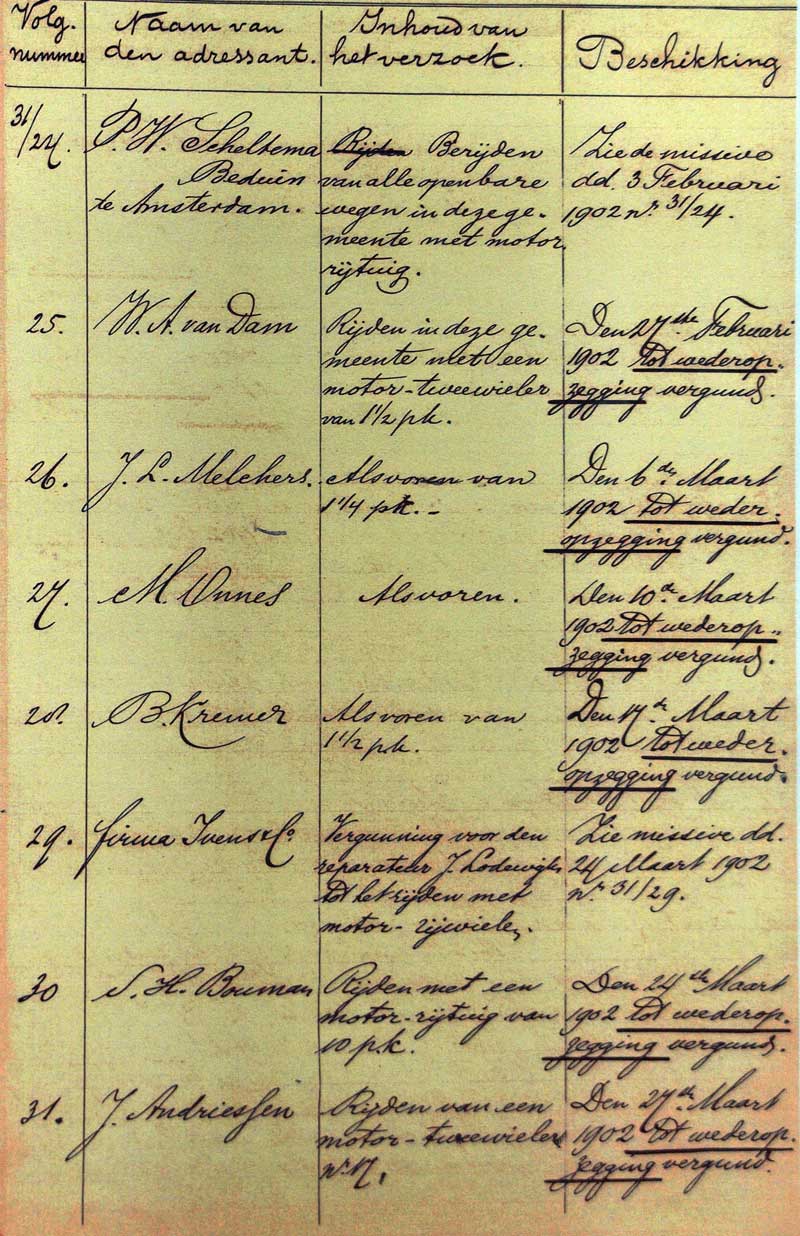 Volg. nummer
Naam van den adressant.
Inhoud van het verzoek.
Beschikking
31/24.
P. W. Scheltema
Beduin
te Amsterdam.
Rijden Berijden
van alle openbare
wegen in deze ge-
meente met motor
rijtuig.
Zie de missive
dd. 3 Februari
1902 nr. 31/24.
25.
W. A. van Dam
Rijden in deze ge-
meente met een
motor-tweewieler
van 1 1/2 pk.
Den 27ste Februari
1902 tot wederop-
zegging vergund.
26.
J. L. Melchers.
Als voren van
1 1/4 pk. -
Den 6de Maart
1902 tot weder-
opzegging vergund.
27.
M. Onnes
Als voren.
Den 10de Maart
1902 tot wederop-
zegging vergund.
28.
B. Kremer
Als voren van
1 1/2 pk.
Den 17de Maart
1902 tot weder-
opzegging vergund.
29.
firma Ivens & Co.
Vergunning voor den
reparateur J. Lodewijks
tot het rijden met
motor-rijwielen.
Zie missive dd.
24 Maart 1902
nr. 31/29.
30
S. H. Bouman
Rijden met een
motor-rijtuig van
10 p.k.
Den 24ste Maart
1902 tot wederop-
zegging vergund.
31.
J. Andriessen
Rijden van een
motor-tweewieler
nr. 17.
Den 27ste Maart
1902 tot wederop-
zegging vergund.